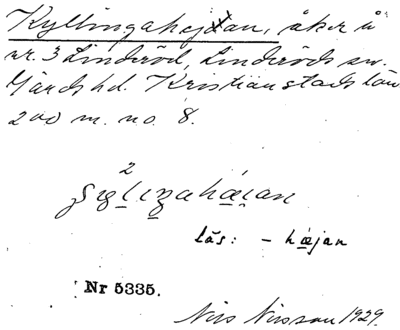 Kyllingahejan, åker å
nr. 3 Linderöd, Linderöds sn.
Gärds hd. Kristianstads län
200 m. no 8.
2
läs: - hæjan
Nr 5335.
Nils Nilsson 1929.